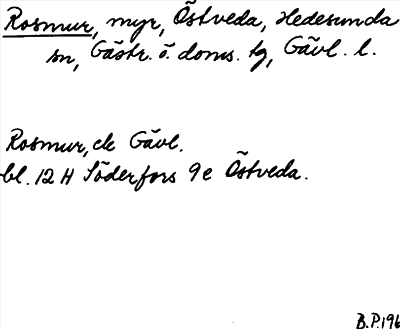 Rosmur, myr, Östveda, Hedesunda
sn, Gästr. ö. doms. tg, Gävl. l.
Rosmur, ek Gävl.
bl. 12 H Söderfors 9 e Östveda.
B.P. 196